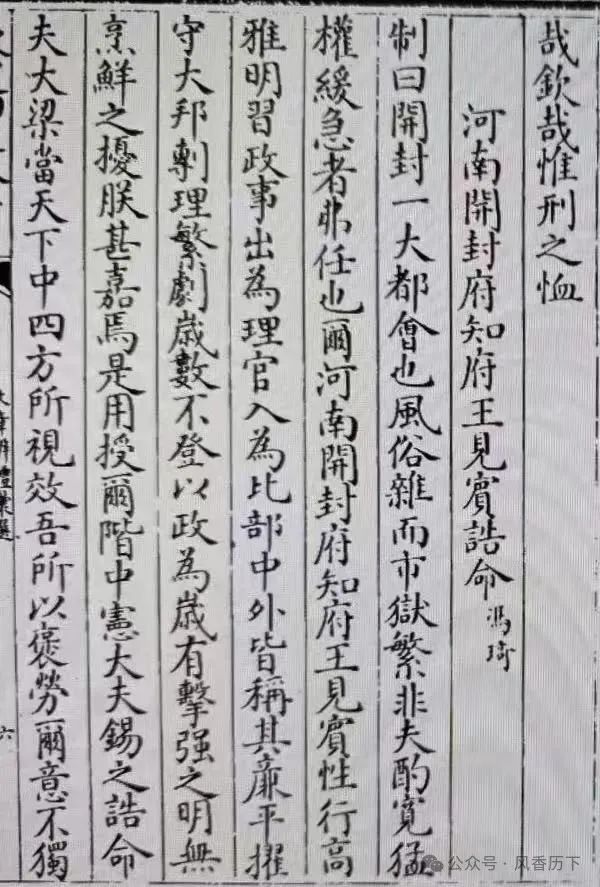 哉欽哉惟刑之恤
河南開封府知府王見賓誥命 馮琦
制曰開封一大都會也風俗雜而市獄繁非夫酌寬猛
權緩急者弗任也爾河南開封府知府王見賓性行高
雅明習政事出為理官入為比部中外皆稱其廉平擢
守大邦剸理繁劇歲數不登以政為歲有擊强之明無
烹鮮之擾朕甚嘉焉是用授爾階中憲大夫錫之誥命
夫大梁當天下中四方所視效吾所以褒勞爾意不獨
文章辨體彙選
六
公众号·风香历下